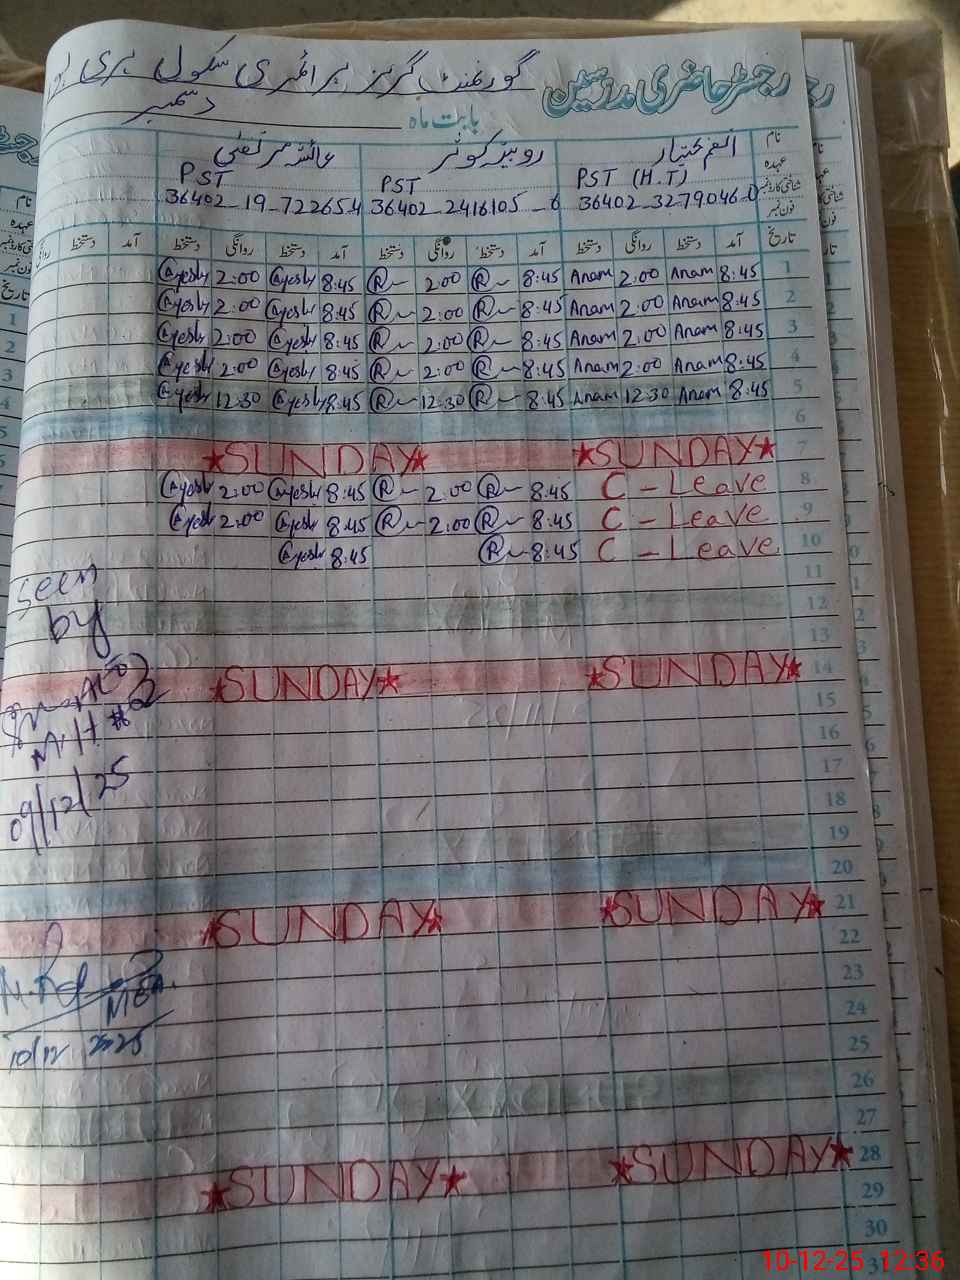 رجسٹر حاضری مدرسین گورنمنٹ گرلز پرائمری سکول ہری
بابت ماہ دسمبر
نام انعم مختیار روبینہ کوثر عائشہ مرتضیٰ
عہدہ PST (H.T) PST PST
شناختی کارڈ نمبر 36402_3279046_0 36402_2416105_6 36402_19_722654
فون نمبر
تاریخ آمد دستخط روانگی دستخط آمد دستخط روانگی دستخط آمد دستخط روانگی دستخط آمد دستخط
1 8:45 Anam 2:00 Anam 8:45 R 2:00 R 8:45 Ayesh 2:00 Ayesh
2 8:45 Anam 2:00 Anam 8:45 R 2:00 R 8:45 Ayesh 2:00 Ayesh
3 8:45 Anam 2:00 Anam 8:45 R 2:00 R 8:45 Ayesh 2:00 Ayesh
4 8:45 Anam 2:00 Anam 8:45 R 2:00 R 8:45 Ayesh 2:00 Ayesh
5 8:45 Anam 12:30 Anam 8:45 R 12:30 R 8:45 Ayesh 12:30 Ayesh
6
7 SUNDAY SUNDAY
8 C - Leave 8:45 R 2:00 R 8:45 Ayesh 2:00 Ayesh
9 C - Leave 8:45 R 2:00 R 8:45 Ayesh 2:00 Ayesh
10 C - Leave 8:45 R 8:45 Ayesh
11
12
13
14 SUNDAY SUNDAY
15
16
17
18
19
20
21 SUNDAY SUNDAY
22
23
24
25
26
27
28 SUNDAY SUNDAY
29
30
31
seen
by
09/12/25
MEA.
10/12 2025
10-12-25 12:36